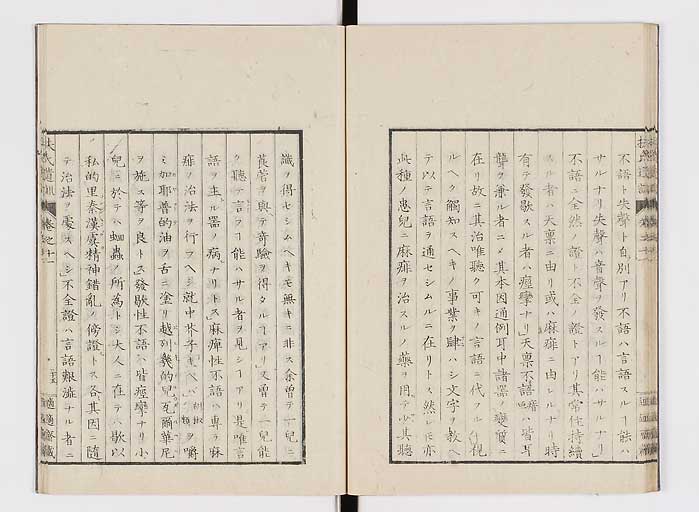 不語ト失聲ト自別アリ不語ハ言語スルヿ能ハ
サルナリ失聲ハ音聲ヲ發スルヿ能ハサルナリ
不語ニ全然ノ證ト不全ノ證トアリ其常住持續
スル者ハ天禀ニ由リ或ハ麻痺ニ由レルナリ時
有テ發歇スル者ハ痙攣ナリ天禀不語ハ皆耳
聾ヲ兼ル者ニメ其本因通例耳中諸器ノ變質ニ
在リ故ニ其治唯聽ク可キノ言語ニ代フルニ視
ルヘク觸知スヘキノ事業ヲ肆ハシ文字ヲ敎ヘ
テ以テ言語ヲ通セシムルニ在リトス然レ𪜈亦
此種ノ患兒ニ麻痺ヲ治スルノ藥ヲ用テ其聽
識ヲ得セシムヘキモ無キニ非ス余曾テ一兒ニ
莨菪ヲ與テ奇驗ヲ得タルヿアリ又曾テ一兒能
ク聽テ言フヿ能ハサル者ヲ見シヿアリ是唯言
語ヲ主ル器ノ病ナリトス麻痺性不語ハ專ラ麻
痺ノ治法ヲ行フヘシ就中芥子ヲ嚼
ミ加耶普的油ヲ舌ニ塗リ越列幾的兒瓦爾華尼
ヲ施ス等ヲ良トス發歇性不語ハ皆痙攣ナリ小
兒ニ於テハ蛔蟲ノ所為トシ大人ニ在テハ歇以
私的里秦漢癘精神錯亂ノ傍證トス各其因ニ隨
テ治法ヲ處スヘシ不全證ハ言語艱澁ナル者ニ
扶氏遺訓 卷之十二
適適齋藏